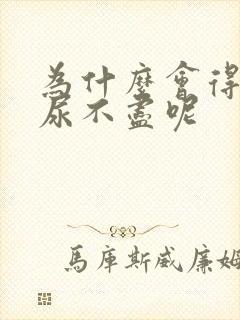 為什麼會得
尿不盡呢
馬庫斯威廉姆